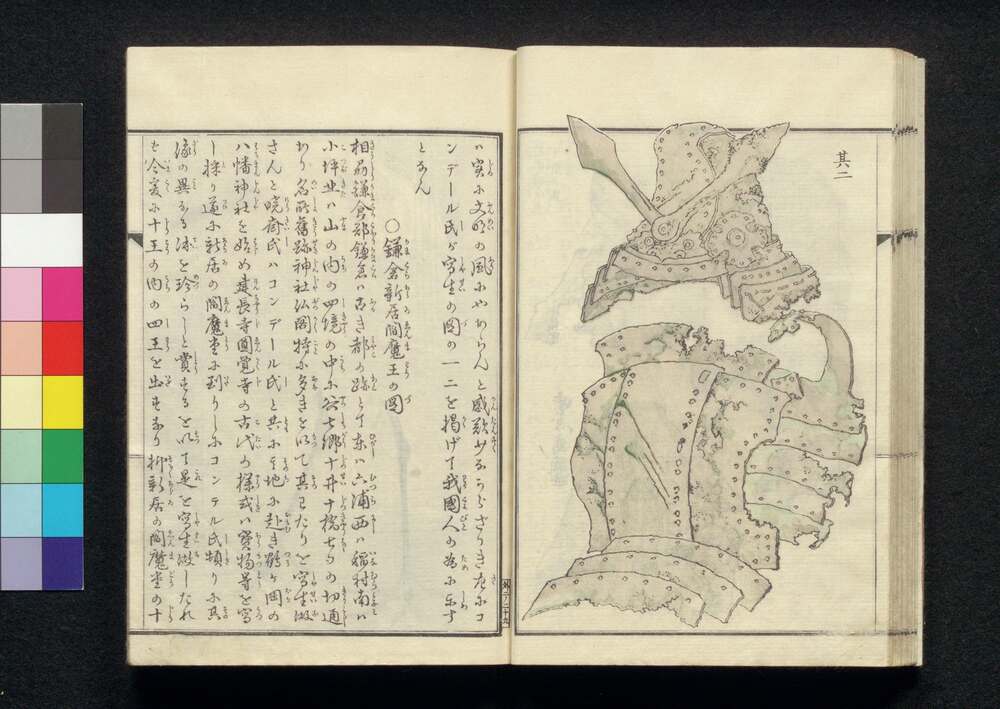 其二
ハ実に文明の風にやあらんと感歎少なからざりき左にコ
ンデール氏が写生の図の一二を掲げて我國人の為に示す
となん
○鎌倉新居閻魔王の図
相刕鎌倉郡鎌倉ハ古き都の跡とて東ハ六浦西ハ稲村南ハ
小坪北ハ山の内の四境の中に谷七郷十井十橋七ツの切通
あり名所舊跡神社仏閣特に多きを以て其わたりを写生做
さんと暁斎氏ハコンデール氏と共に其地に赴き鶴ヶ岡の
八幡神社を始め建長寺圓覚寺の古代の様或ハ宝物等を写
し採り遂に新居の閻魔堂に到りしにコンデル氏頻りに其
像の異なる体を珍らしと賞するを以て是を写生做したれ
も今爰に十王の内の四王を出すなり抑新居の閻魔堂の十